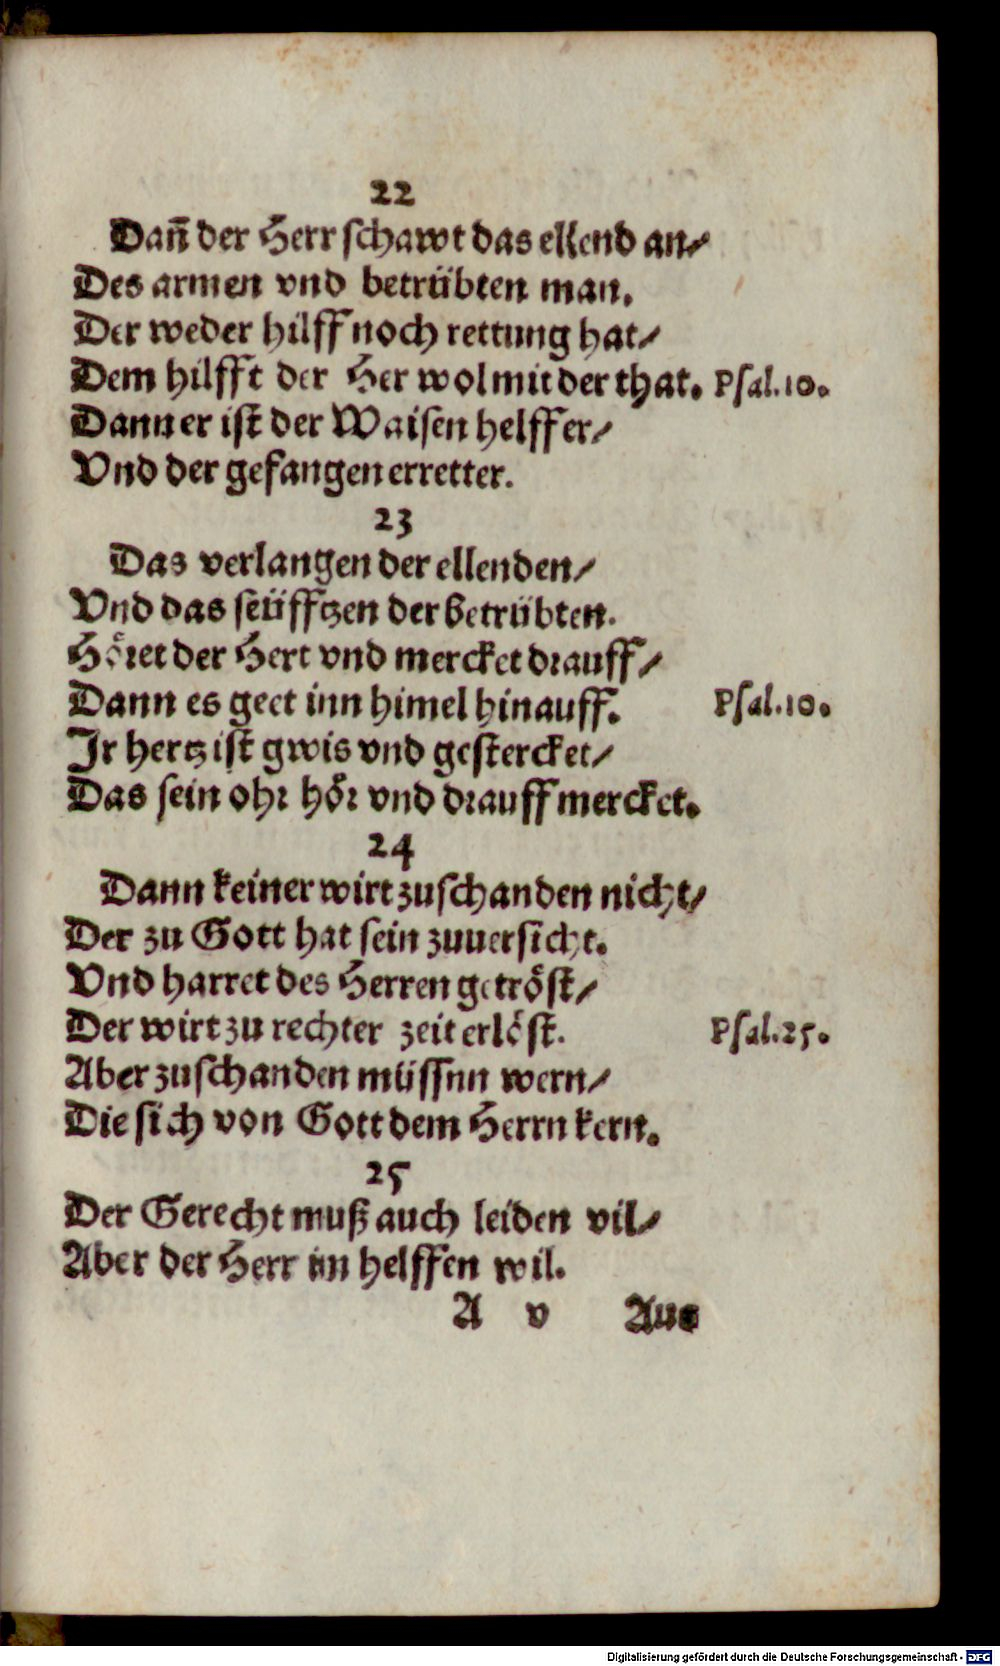 22
Dañ der Herr schawt das ellend an/
Des armen vnd betrübten man.
Der weder hilff noch rettung hat/
Dem hilfft der Her wol mit der that. Psal.10.
Dann er ist der Waisen helffer/
Vnd der gefangen erretter.
23
Das verlangen der ellenden/
Vnd das seüfftzen der betrübten.
Höret der Herr vnd mercket drauff/
Dann es geet inn himel hinauff. Psal.10.
Ir hertz ist gwis vnd gestercket/
Das sein ohr hör vnd drauff mercket.
24
Dann keiner wirt zuschanden nicht/
Der zu Gott hat sein zuuersicht.
Vnd harret des Herren getröst/
Der wirt zu rechter zeit erlöst. Psal.25.
Aber zuschanden müssnn wern/
Die sich von Gott dem Herrn kern.
25
Der Gerecht muß auch leiden vil/
Aber der Herr im helffen wil.
A v Aus
Digitalisierung gefördert durch die Deutsche Forschungsgemeinschaft - DFG